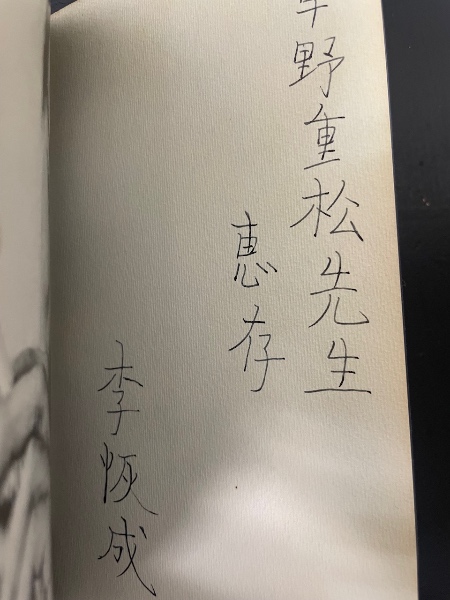 野重松先生
恵存
李恢成